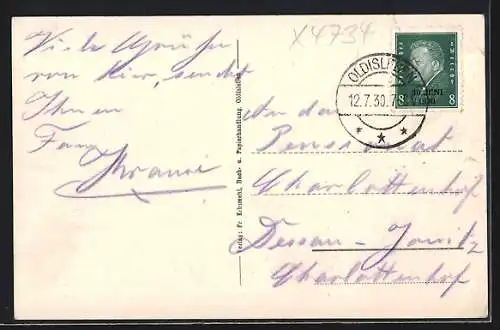 X4734
Viele Grüße
von hier, sendet
Ihnen
Fam.
OLDISLEBEN
12.7.30.7
DEUTSCHES REICH
30. JUNI
1930
8 8
An das
Pensionat
Charlottenhof
Dessau-
Charlottenhof
Verlag: Fr. Buch- u. Papierhandlung, Oldisleben